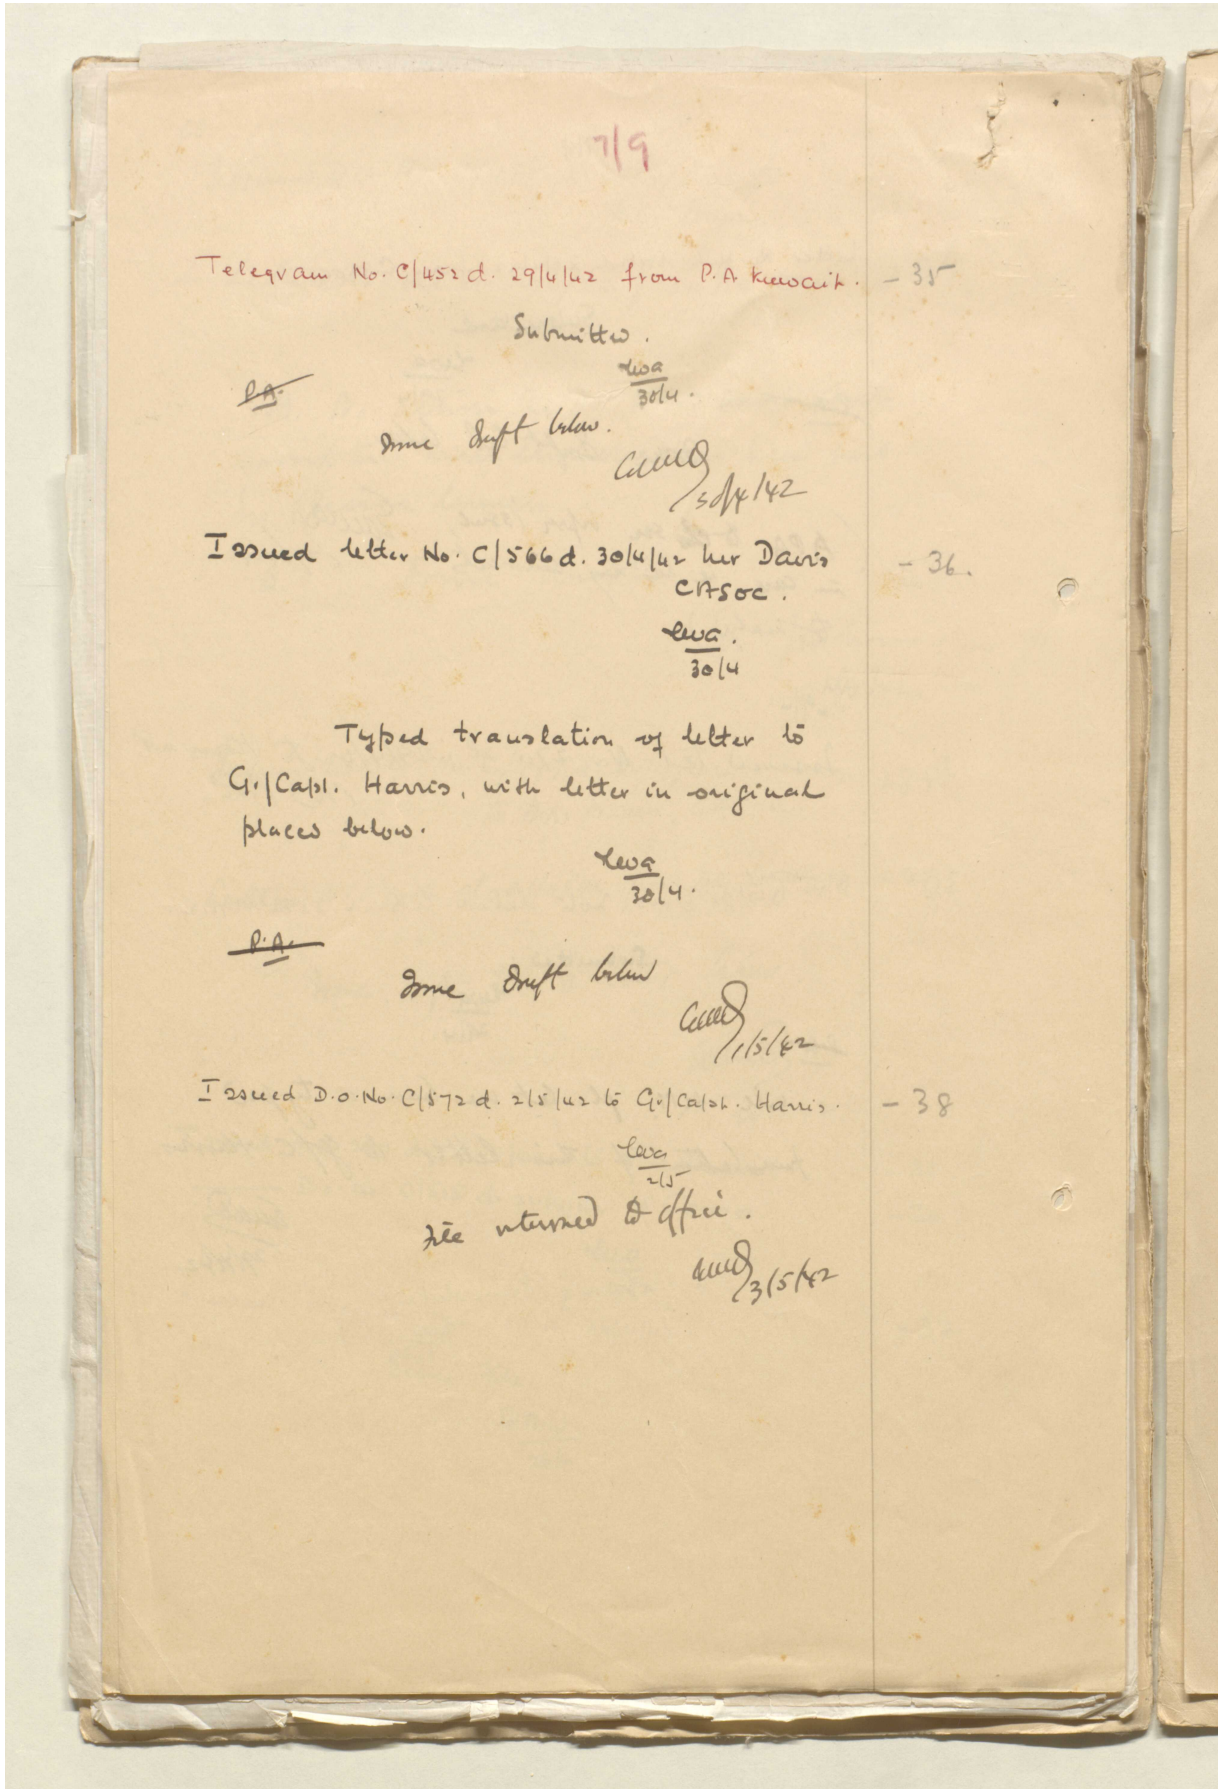 7/9
Telegram No. C/452 d. 29/4/42 from P.A Kuwait. - 35
Submitted.
30/4.
P.A.
Issue draft below.
30/4/42
Issued letter No. C/566 d. 30/4/42 Mr Davis - 36.
CASOC.
30/4
Typed translation of letter to
Gr/Capt. Harris, with letter in original
placed below.
30/4.
P.A.
Issue draft below
1/5/42
Issued D.O. No. C/572 d. 2/5/42 to Gr/Capt. Harris. - 38
2/5
File returned to office.
3/5/42